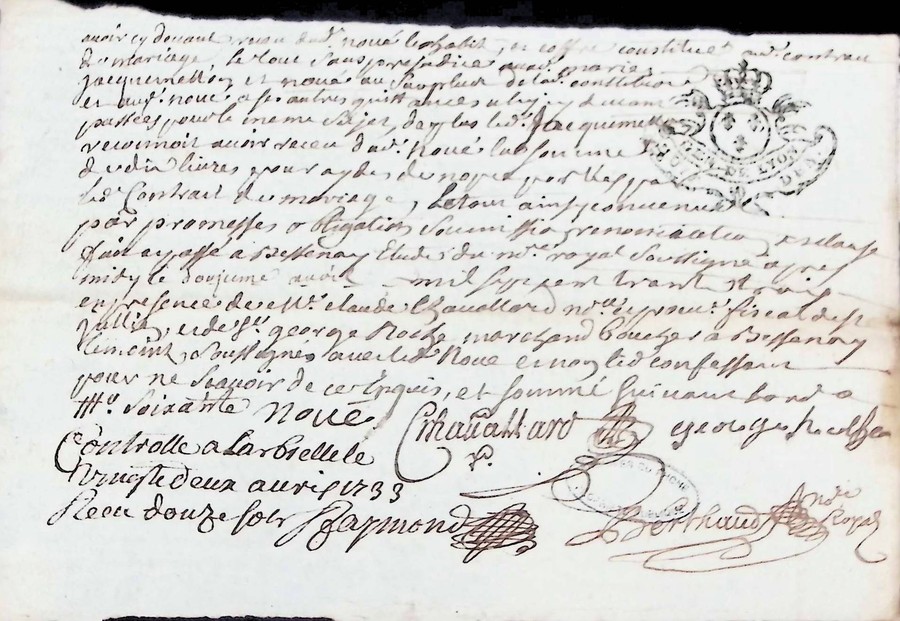 avoir cy devant receu dud. noué le habit, et coffre constitués aud. contrau
de mariage, le tout sans prejudice auxd. mariés
Jacquemetton, et noué au surplus de lad. constitution
et aud. noué a ses autres quittances
passées pour le meme sujet, de plus led. Jacquemetton
reconnoit avoir receu dud. Noué la somme
de dix livres pour aydes de nopce portées par
led. Contrat de mariage, le tout ainsy convenu
par promesses obligation soumission renonciation & clause
fait et passé a Bessenay Etude du nre. royal soussigné apres
midy le avril mil sept cent trante trois
en presence de Mre. claude Chavallard nre. et procur. fiscal de st
Jullien, et de sr. george Roche marchand boucher a Bessenay
temoins soussignés avec led. Noué et non led. confessant
pour ne scavoir de ce Enquis, et sommé suivant l'ord.
Noué
Chavallard george Roche
Controllé a Larbresle le
vingt deux avril 1733
Receu douze sols Raymond
Berthaud nre Royal
GEN. DE LYON